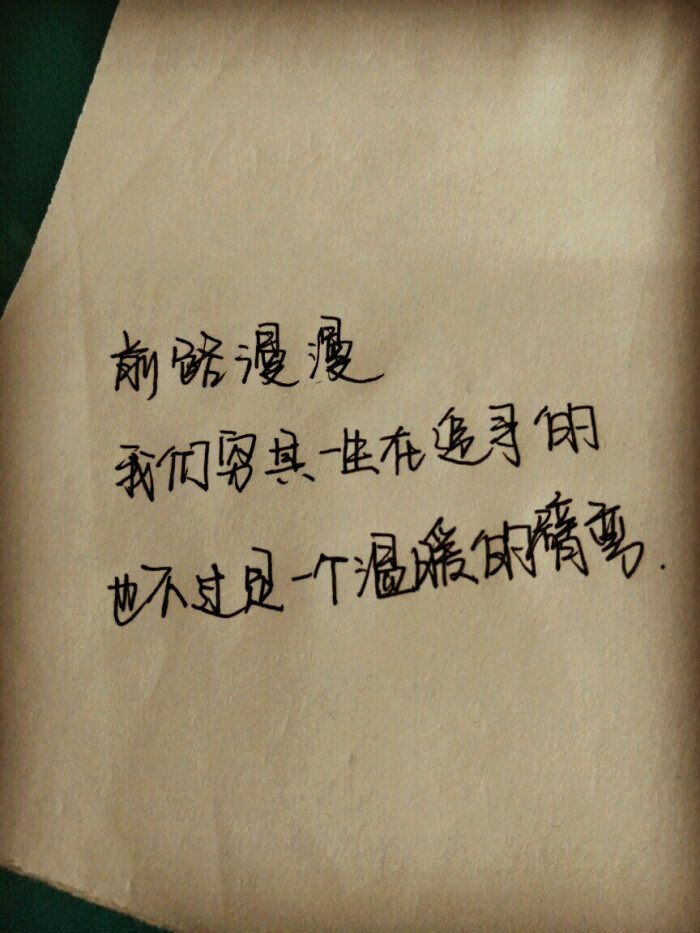 前路漫漫
我们穷其一生在追寻的
也不过是一个温暖的臂弯.